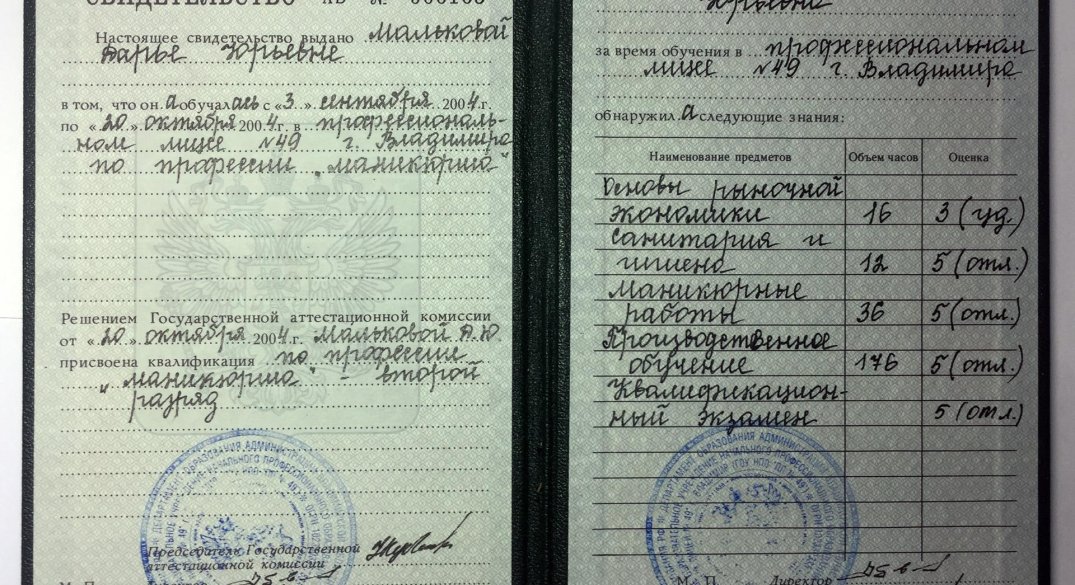 СВИДЕТЕЛЬСТВО
Настоящее свидетельство выдано Мальковой
Дарье Юрьевне
в том, что он а обучалась с «3» сентября 2004 г.
по «20» октября 2004 г. в профессиональ-
ном лицее №49 г. Владимира
по профессии "маникюрша"
Решением Государственной аттестационной комиссии
от «20» октября 2004 г. Мальковой Д.Ю
присвоена квалификация по профессии
"маникюрша" - второй
разряд
Председатель Государственной
аттестационной комиссии
М. П.
Юрьевне
за время обучения в профессиональном
лицее №49 г. Владимира
обнаружил а следующие знания:
Наименование предметов Объем часов Оценка
Основы рыночной
экономики 16 3 (уд.)
санитария и
гигиена 12 5 (отл.)
Маникюрные
работы 36 5 (отл.)
Производственное
обучение 176 5 (отл.)
Квалификацион-
ный экзамен 5 (отл.)
М. П. Директор